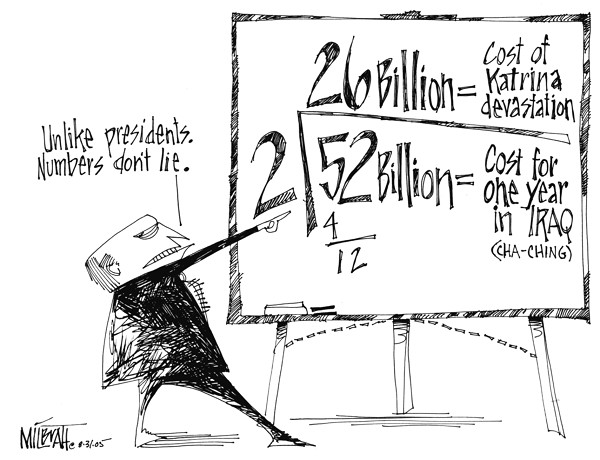 Unlike presidents.
Numbers don't lie.
26 Billion = Cost of
Katrina
devastation
2 52 Billion = Cost for
one year
in IRAQ
(CHA-CHING)
4
12
MILBRATH © 8-31-05